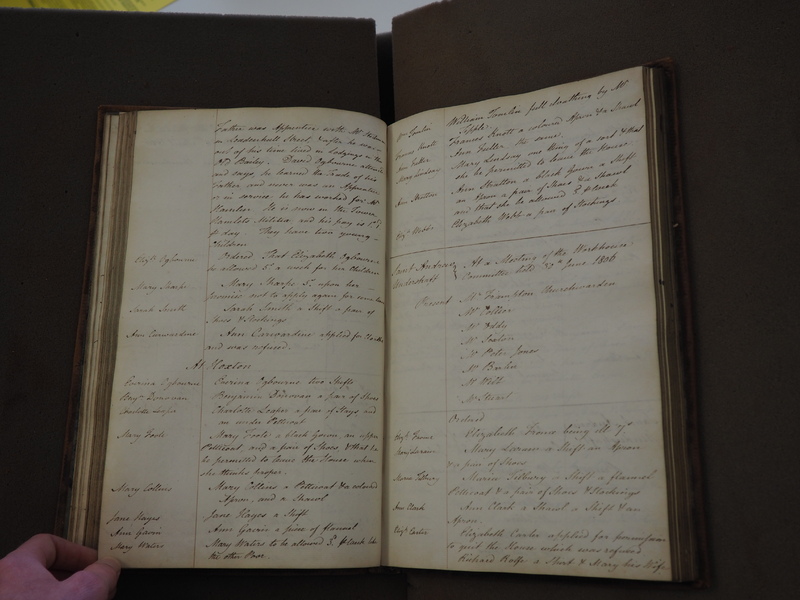 Father was Apprentice with Mr
in Leadenhall Street, & after he was
out of his time lived in Lodgings in the
Old Bailey. David Ogbourne attended
and says, he learned the Trade of his
Father, and never was an Apprentice
or in service, he has worked for Mr
Hamilton. He is now in the Tower
Hamlets Militia and his pay is
day. They have two young
Children
Elizth Ogbourne Ordered That Elizabeth Ogbourne
be allowed a week for her Children
Mary Sharpe Mary Sharpe upon her
promise not to apply again for some time
Sarah Smith Sarah Smith a Shift a pair of
Shoes & Stockings.
Ann Curwardine Ann Curwardine applied for
and was refused.
At Hoxton
Emma Ogbourne Emma Ogbourne two Shifts
Benjn Donovan Benjamin Donovan a pair of Shoes
Charlotte Charlotte a pair of Stays and
an under Petticoat
Mary Foote Mary Foote a black Gown, an upper
Petticoat and a pair of Shoes, & that he
be permitted to leave the House when
she thinks proper.
Mary Collins Mary Collins a Petticoat & a colored
Apron, and a Shawl
Jane Hayes Jane Hayes a Shift
Ann Gavin Ann Gavin a piece of flannel
Mary Waters Mary Waters to be allowed 3d week like
the other Poor.
Wm William full cloathing by Mr
Tipple.
Frances Knott Frances Knott a colored Apron & a Shawl
Ann Fuller Ann Fuller the same.
Mary Lindsay Mary Lindsay one thing of a sort & that
she be permitted to leave the House
Ann Stratton Ann Stratton a black Gown a Shift
an Apron a pair of Shoes & a Shawl
and that she be allowed week
Elizth Webb Elizabeth Webb a pair of Stockings.
Saint Andrew At a Meeting of the Workhouse
Undershaft Committee held June 1806
Present Mr Frampton Churchwarden
Mr Collier
Mr Eddy
Mr
Mr Peter Jones
Mr
Mr Webb
Mr Stuart
Ordered
Elizth Elizabeth being
Mary a Shift an Apron
& a pair of Shoes
Maria Tilbury Maria Tilbury a Shift a flannel
Petticoat & a pair of Shoes & Stockings
Ann Clark Ann Clark a Shawl a Shift & an
Apron.
Elizth Carter Elizabeth Carter applied for permission
to quit the House which was refused
Richard Rolfe a Shirt & Mary his Wife